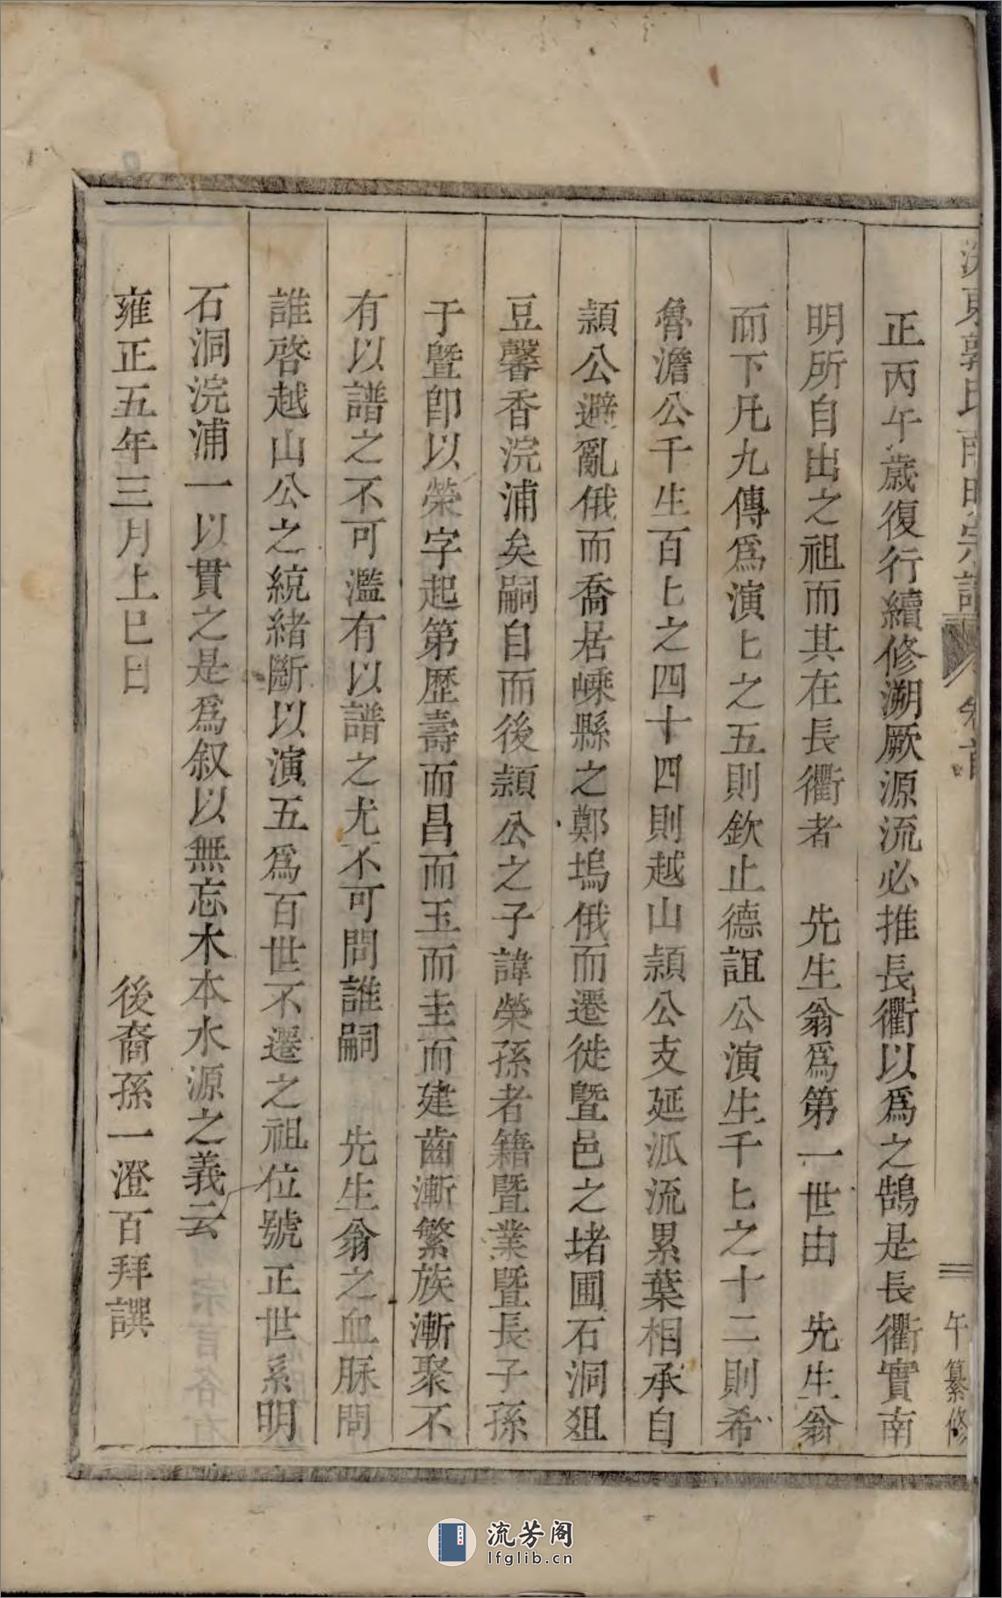 東郭氏南明宗譜 卷首 三 午纂修
正丙午歲復行續修溯厥源流必推長衢以爲之鵠是長衢實南
明所自出之祖而其在長衢者 先生翁爲第一世由 先生翁
而下凡九傳爲演七之五則欽止德誼公演生千七之十二則希
魯澹公千生百七之四十四則越山頴公支延泒流累葉相承自
頴公避亂俄而喬居嵊縣之鄭塢俄而遷徙暨邑之堵圃石洞俎
豆馨香浣浦矣嗣自而後頴公之子諱榮孫者籍暨業暨長子孫
于暨卽以榮字起第歷壽而昌而玉而圭而建齒漸繁族漸聚不
有以譜之不可濫有以譜之尤不可問誰嗣 先生翁之血脉問
誰啓越山公之統緒斷以演五爲百世不遷之祖位號正世系明
石洞浣浦一以貫之是爲叙以無忘木本水源之義云
雍正五年三月上巳日 後裔孫一澄百拜譔
流芳阁
lfglib.cn